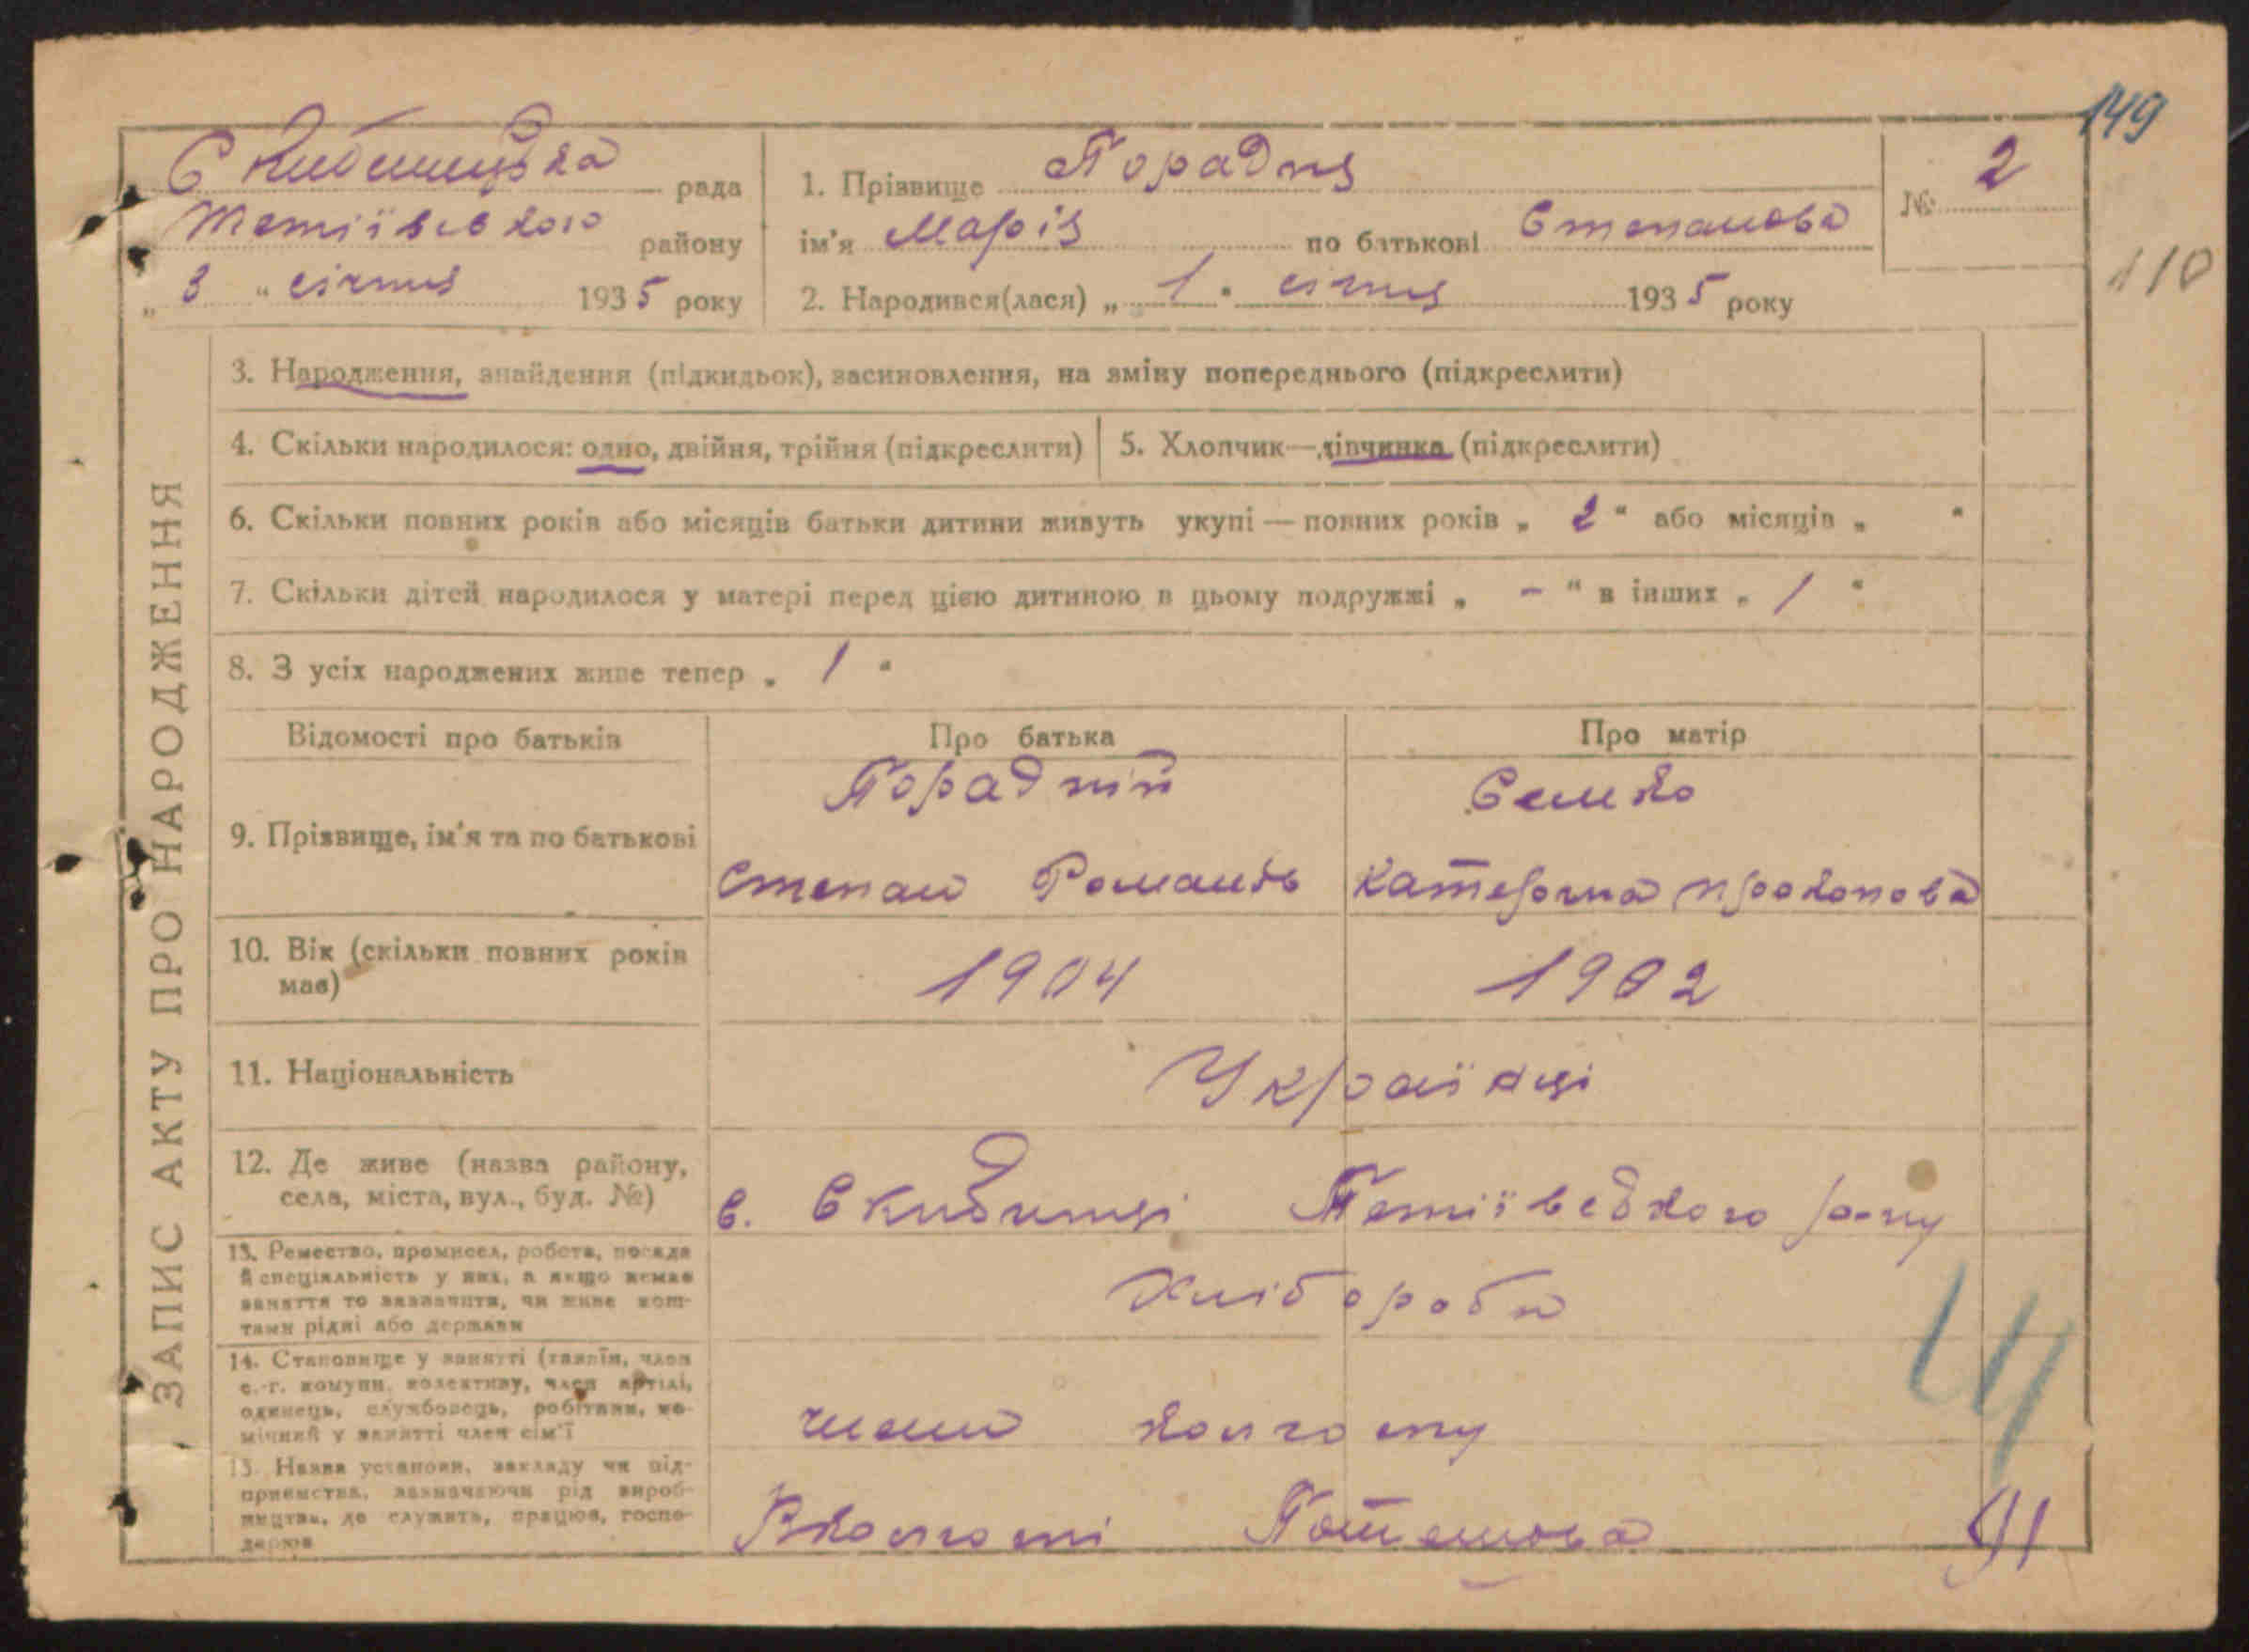 149
Скибинецька рада
Тетіївського району
„ 3 “ січня 1935 року
1. Прізвище Порадня
ім'я Марія по батькові Степанова
2. Народився(лася) „ 1 “ січня 1935 року
№ 2
110
ЗАПИС АКТУ ПРО НАРОДЖЕННЯ
3. Народження, знайдення (підкидьок), засиновлення, на зміну попереднього (підкреслити)
4. Скільки народилося: одно, двійня, трійня (підкреслити)
5. Хлопчик—дівчинка (підкреслити)
6. Скільки повних років або місяців батьки дитини живуть укупі — повних років „ 2 “ або місяців „ “
7. Скільки дітей народилося у матері перед цією дитиною в цьому подружжі „ – “ в інших „ 1 “
8. З усіх народжених живе тепер „ 1 “
Відомості про батьків
Про батька
Про матір
9. Прізвище, ім'я та по батькові
Порадній
Степан Романів
Семко
Катерина Прокопова
10. Вік (скільки повних років
має)
1904
1902
11. Національність
Українці
12. Де живе (назва району,
села, міста, вул., буд. №)
с. Скибинці Тетіївського р-ну
13. Ремество, промисел, робота, посада
й спеціяльність у них, а якщо немає
заняття то зазначити, чи живе кош-
тами рідні або держави
Хлібороби
14. Становище у занятті (хазяїн, член
с.-г. комуни, колективу, член артілі,
одинець, службовець, робітник, по-
мічний у занятті член сім'ї
члени колгоспу
15. Назва установи, закладу чи під-
приємства, зазначаючи рід вироб-
ництва, де служить, працює, госпо-
дарює
В колгоспі
91